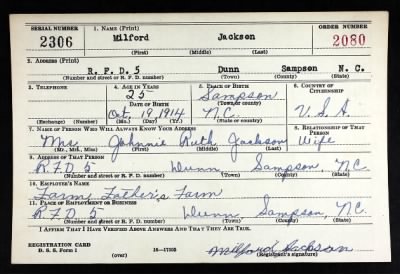 SERIAL NUMBER 1. NAME (Print) ORDER NUMBER
2306 Milford Jackson 2080
(First) (Middle) (Last)
2. ADDRESS (Print)
R. F. D. 5 Dunn Sampson N. C.
(Number and street or R. F. D. number) (Town) (County) (State)
3. TELEPHONE 4. AGE IN YEARS 5. PLACE OF BIRTH 6. COUNTRY OF CITIZENSHIP
25 Sampson
DATE OF BIRTH (Town or county)
Oct. 19 1914 N.C. U.S.A.
(Exchange) (Number) (Mo.) (Day) (Yr.) (State or country)
7. NAME OF PERSON WHO WILL ALWAYS KNOW YOUR ADDRESS 8. RELATIONSHIP OF THAT PERSON
Mrs. Johnnie Ruth Jackson Wife
(Mr., Mrs., Miss) (First) (Middle) (Last)
9. ADDRESS OF THAT PERSON
R.F.D 5 Dunn Sampson, N.C.
(Number and street or R. F. D. number) (Town) (County) (State)
10. EMPLOYER'S NAME
Farm, Father's Farm
11. PLACE OF EMPLOYMENT OR BUSINESS
R.F.D 5 Dunn Sampson, N.C.
(Number and street or R. F. D. number) (Town) (County) (State)
I AFFIRM THAT I HAVE VERIFIED ABOVE ANSWERS AND THAT THEY ARE TRUE.
REGISTRATION CARD
D. S. S. Form 1 16—17105 Milford Jackson
(over) (Registrant's signature)